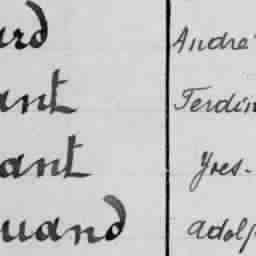 urd André
ant Ferdin
ant Yves-
uand Adolp